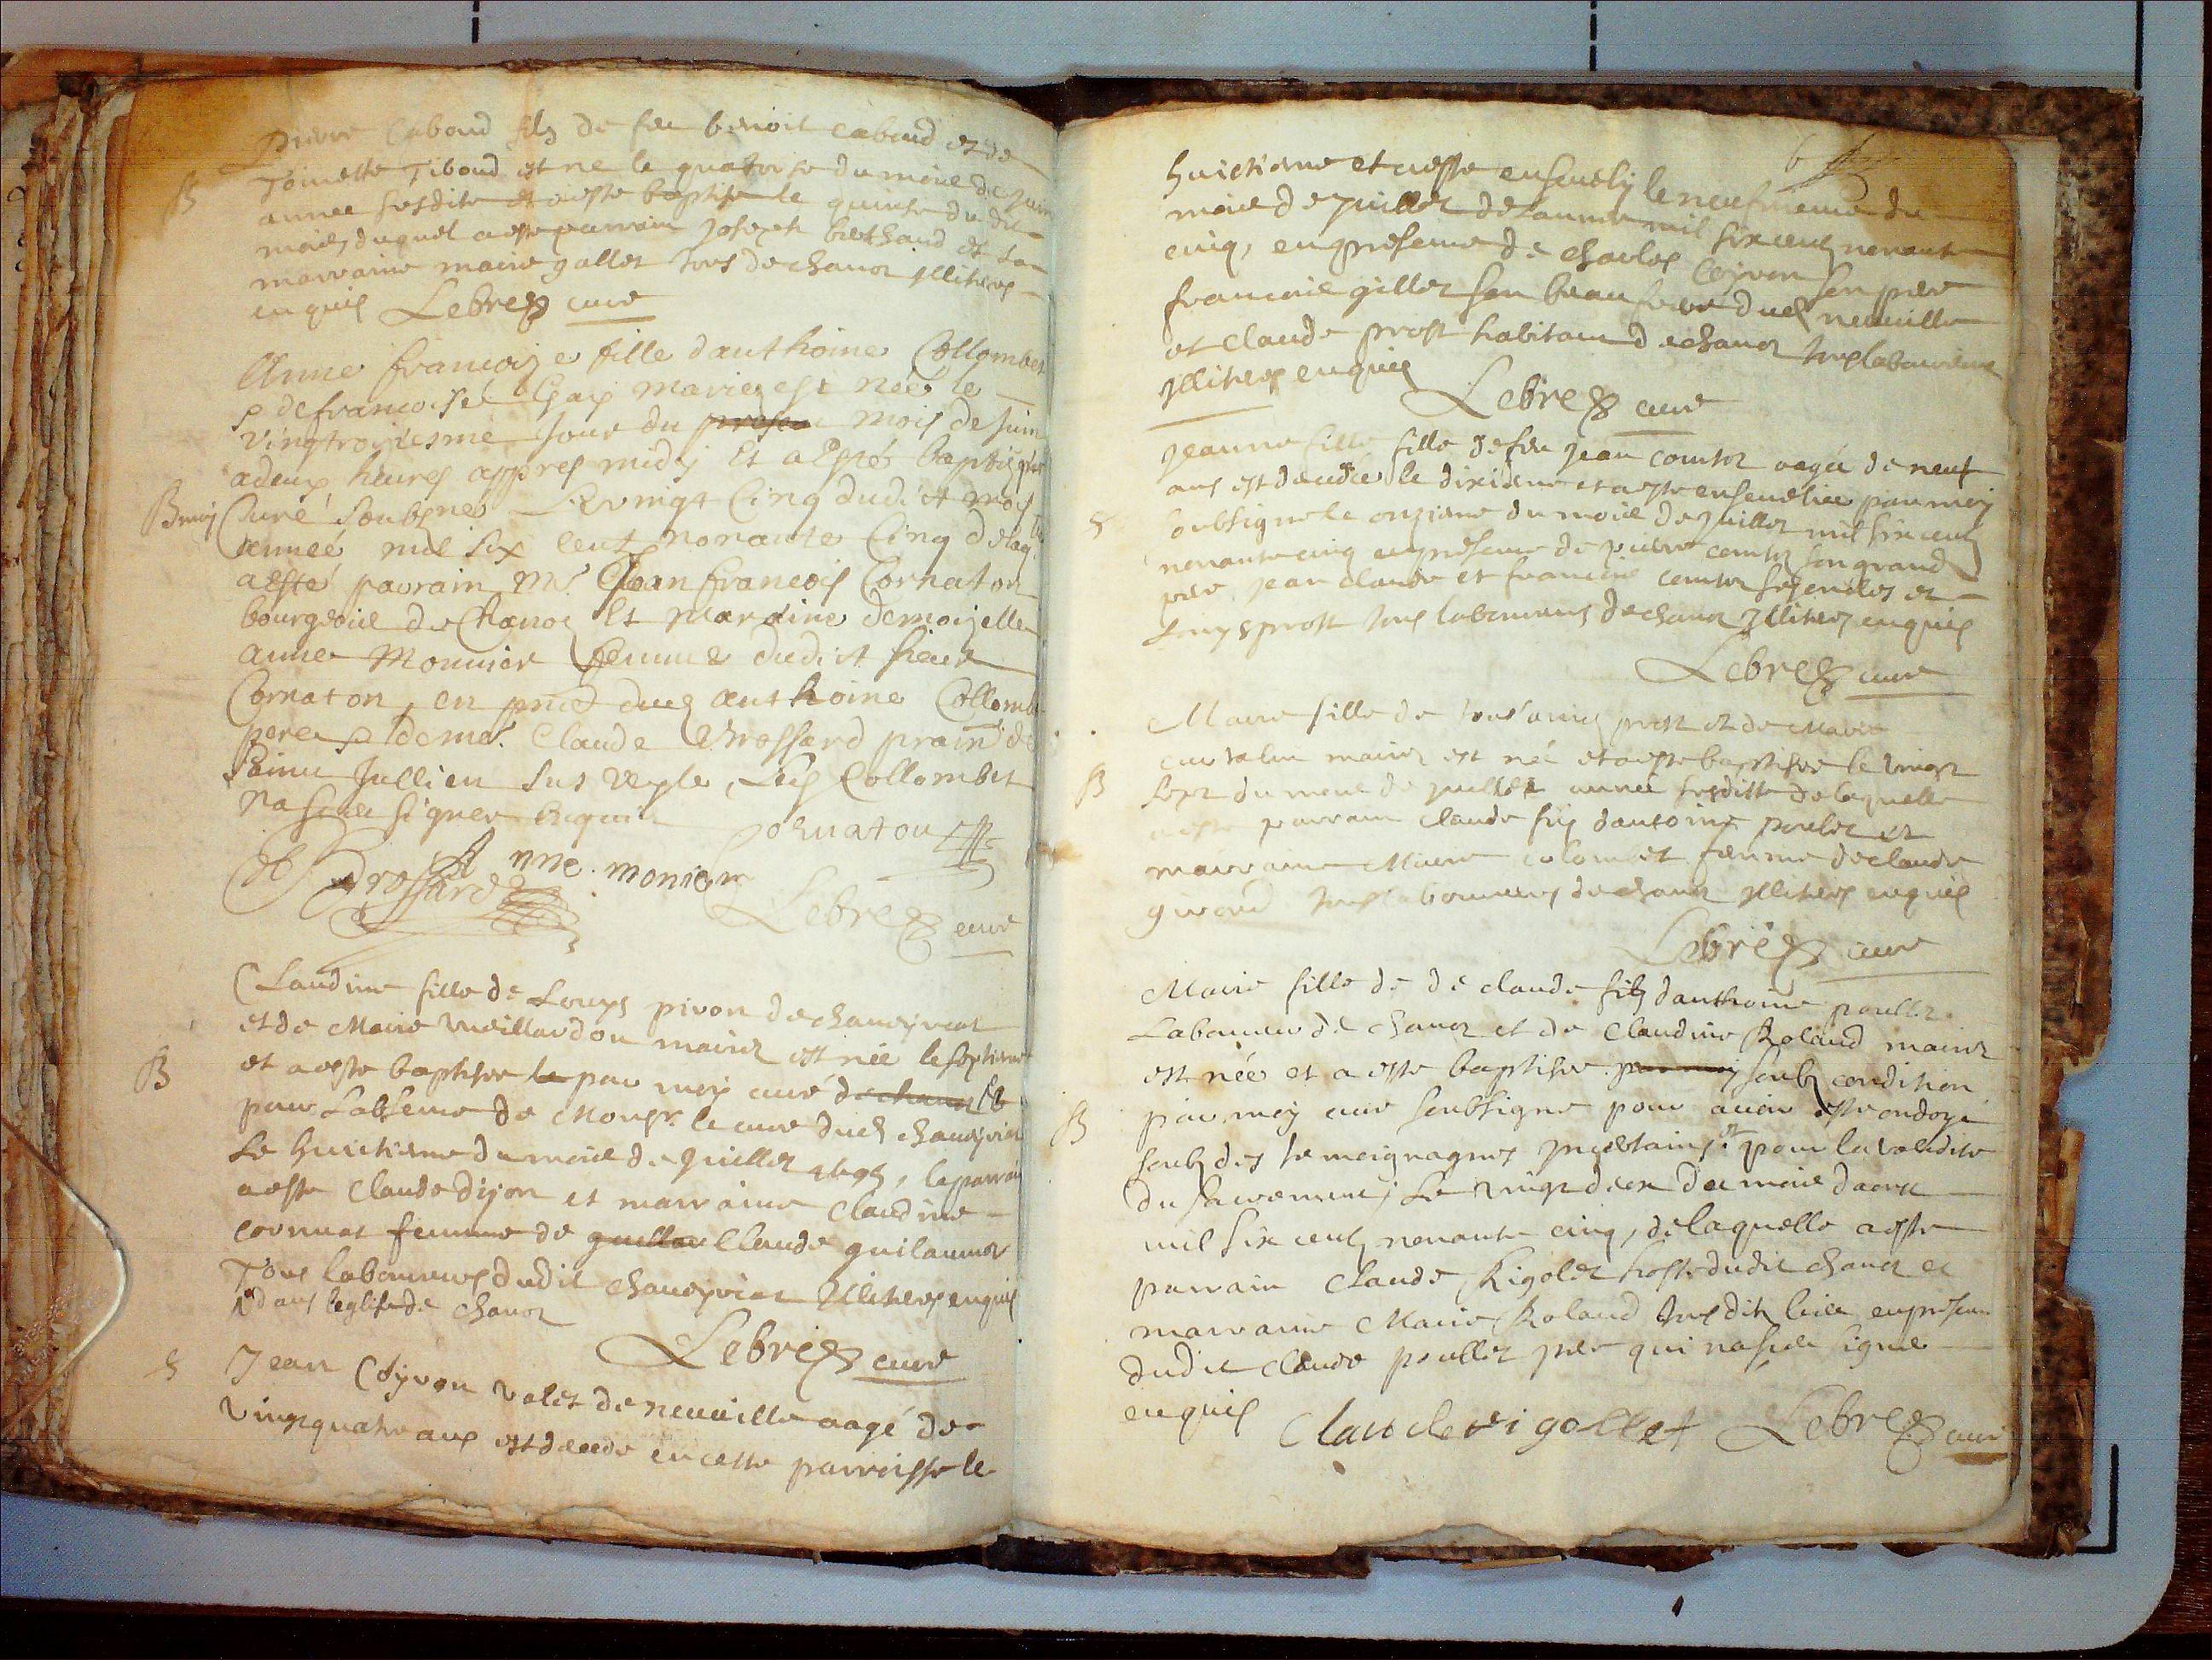 Pierre Caboud fils de feu benoit caboud et de
Toinette Tiboud est ne le quatorse du mois de Juin
B
annee susdite et a este baptise le quinse du dit
mois, duquel a este parrain Joseph berthaud et la
marraine marie gallet tous de chanoz Illiteres
enquis Lebrez cure
Anne francoise fille d'anthoine Collombet
& de francoise Gay mariez est née le
vingtroisiesme jour du presen mois de juin
a deux heures appres midy Et a Esté baptisé par
B moy Curé soubsné Le vingt Cinq dudict mois
année mil six cent nonante Cinq de laq.
a esté parrain Mr. Jean francois Cornaton
bourgeois de Chanoz Et Maraine demoiselle
anne Monnier femme dudict sieur
Cornaton, en pnce dud anthoine Collombet
pere & de mr. Claude Brossard prain de
Saint Jullien sus veyle, Led Collombet
na sceu signer Enquis
Cornaton
Brossard
Anne monier
Lebrez cure
Claudine fille de Louys pivon de chaveyriat
et de Marie vieillardon mariez est née le septiesme
B
et a este baptisee le par moy curé de chanoz
pour Labsence de Monsr. le cure dud chaveyriat
Le huictiesme du mois de Juillet 1695, le parrain
a este Claude dijon et marraine Claudine
cornuat femme de guillau Claude guilaumot
Tous laboureurs dudit chaveyriat Illiteres enquis
dans leglise de chanoz
Lebrez cure
S
Jean Coÿron valet de neuville aagé de
vingtquatre ans est decede en cette parroisse le
6
huictieme et a este ensevely le neufvieme du
mois de Juillet de lannee mil six cent nonante
cinq, en presence de Charles Coyron son pere
francois gillet son beau frere dud neuville
et Claude prost habitant de chanoz tous laboureurs
Illiteres enquis
Lebrez cure
Jeanne fille fille de feu Jean comtet aagée de neuf
ans est decedée le dixieme et a este ensevelie par moy
S
soubsigne le onzieme du mois de Juillet mil six cent
nonante cinq en presence de pierre comtet son grand
pere, Jean claude et francois comtet ses oncles et
Louys prost tous laboureurs de chanoz Illiteres enquis
Lebrez cure
Marie fille de toussainct prost et de Marie
mariez est né et a este baptisee le vingt
B
sept du mois de Juillet année susditte de laquelle
a este parrain Claude fils dantoine poulet et
marraine Marie colombet femme de claude
giroud tous laboureurs de chanoz Illiteres enquis
Lebrez cure
Marie fille de de claude fils danthoine poullet
Laboureur de chanoz et de Claudine Roland mariez
est née et a este baptisee par moy soubs condition
B
par moy cure soubsigne pour avoir este ondoyé
soubs des temoignages incertains et pour la validite
du sacrement, Le vingt deux du mois daoust
mil six cent nonante cinq, de laquelle a este
parrain Claude Rigolet hoste dudit chanoz et
marraine Marie Roland dudit lieu en presence
dudit Claude poullet pere qui na sceu signe
enquis
Claude rigollet Lebrez cure